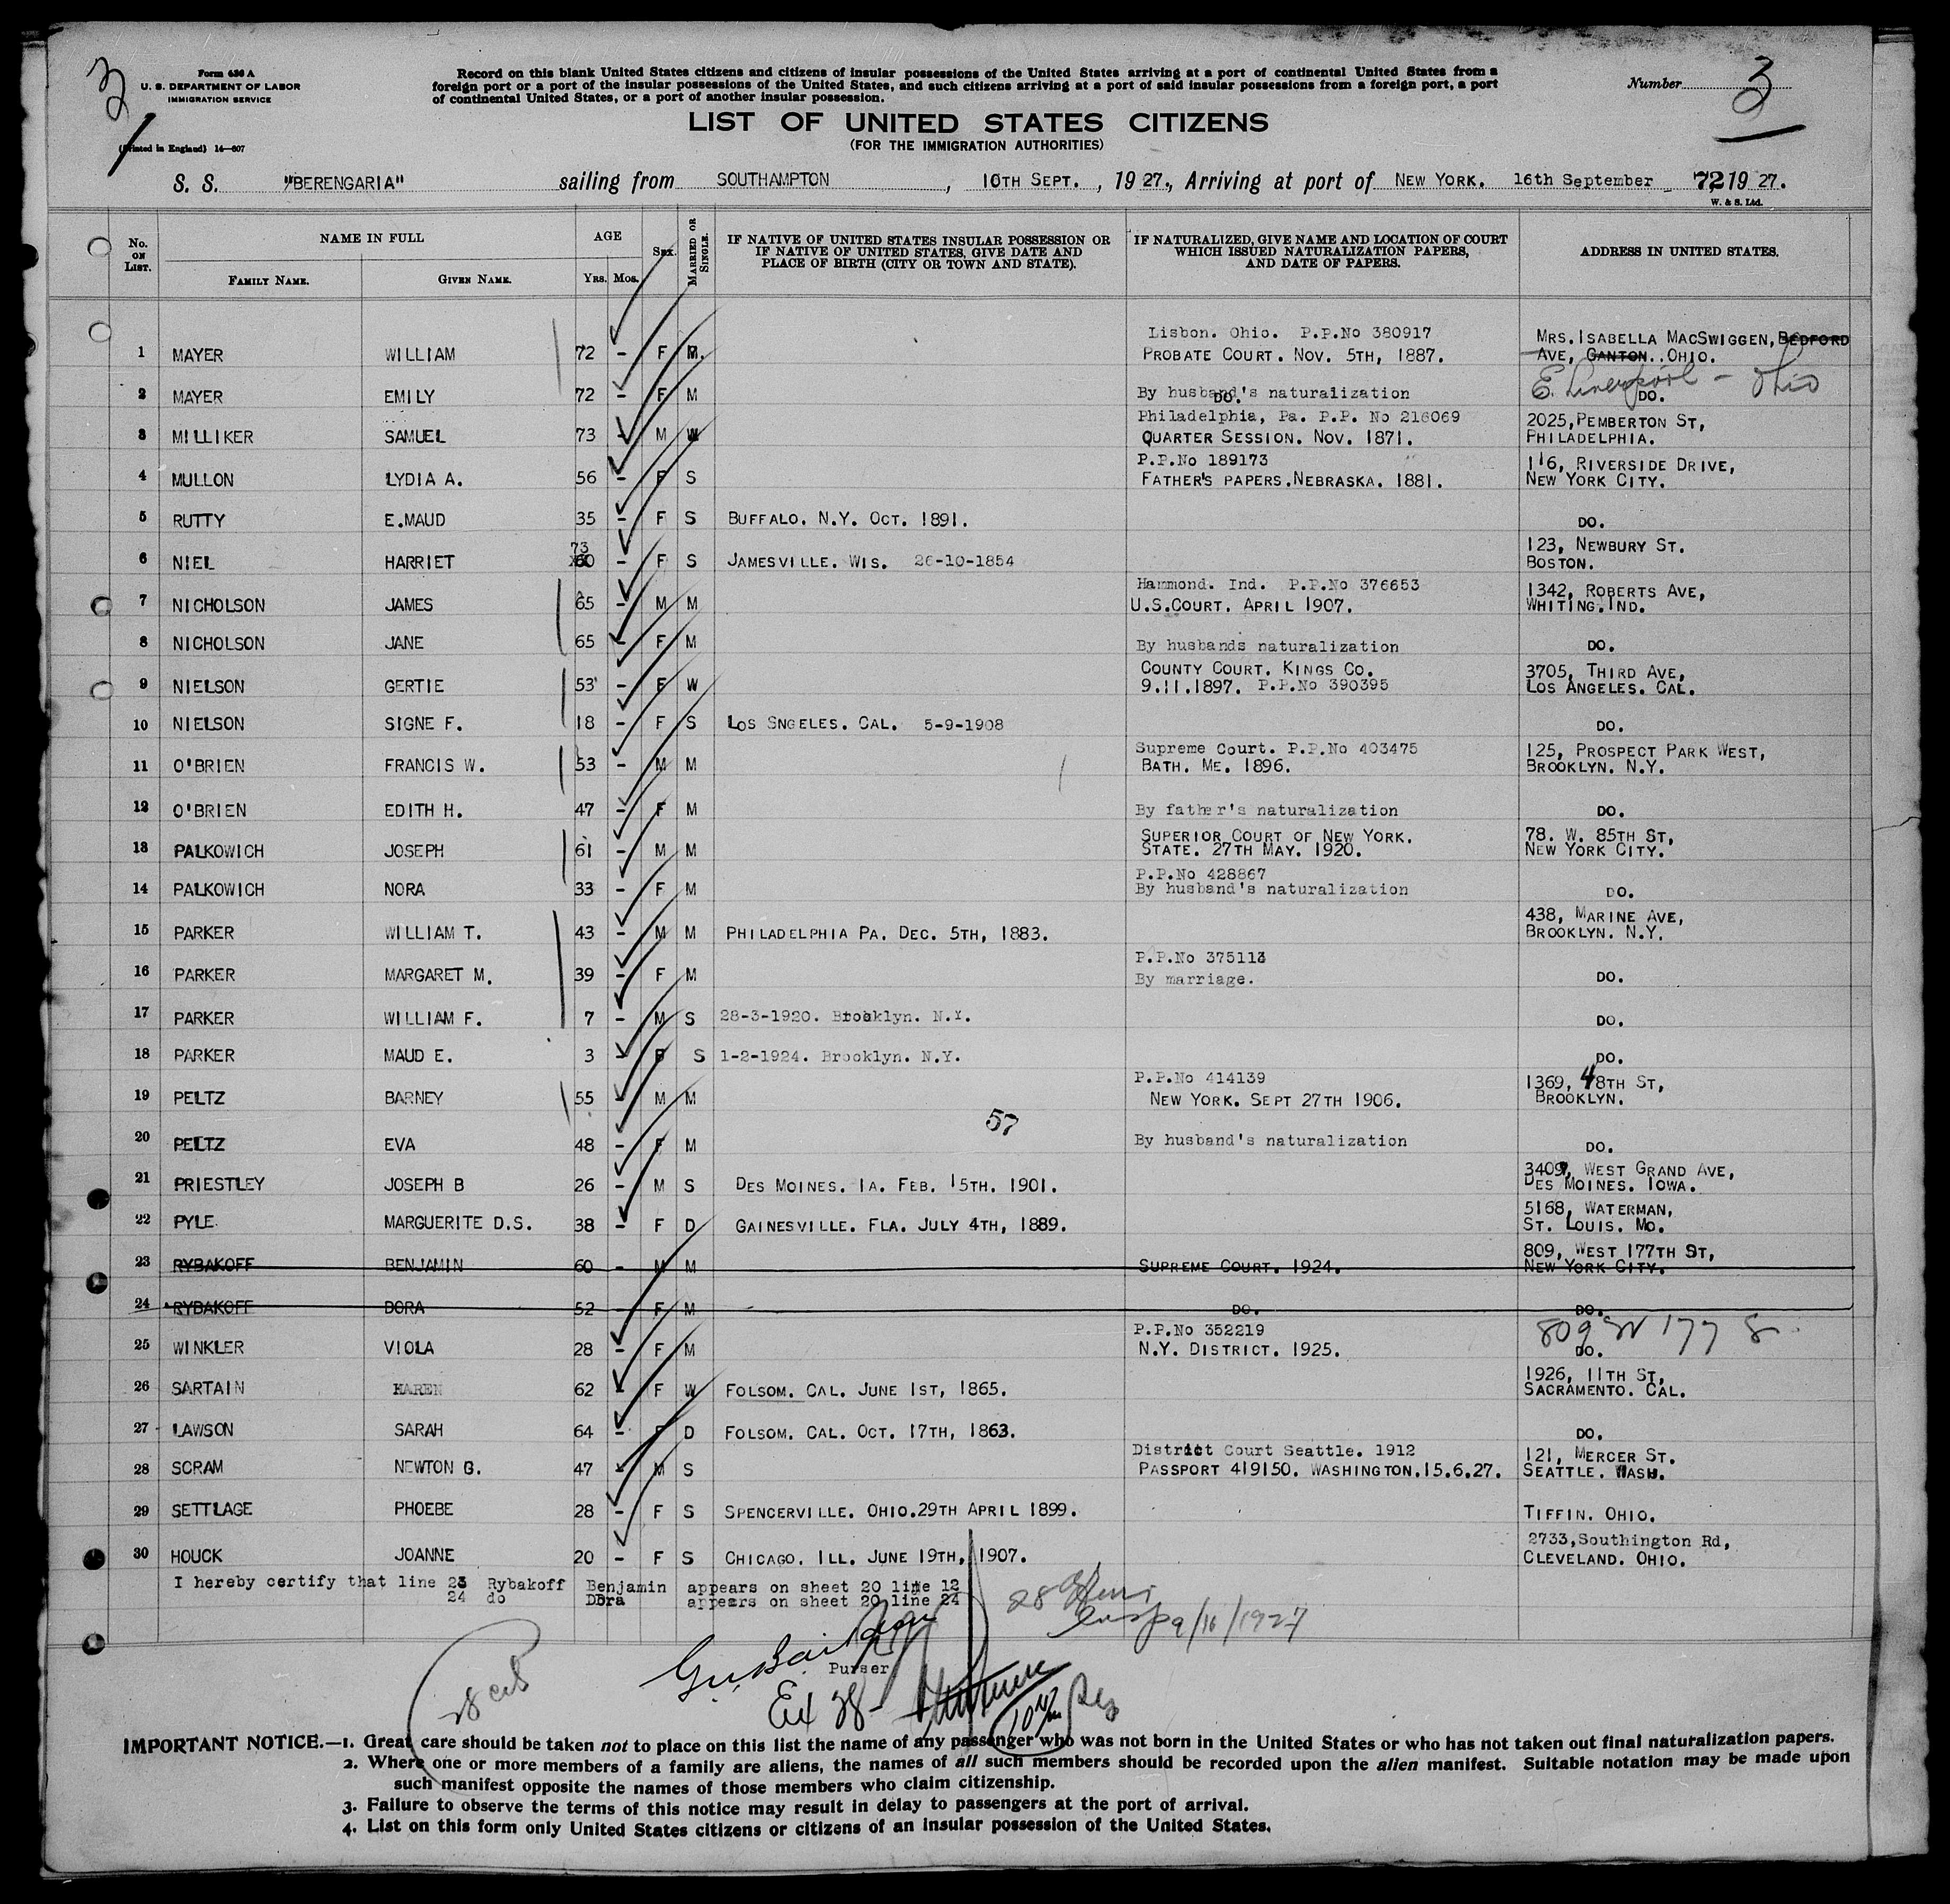 3
1
Form 436 A
U. S. DEPARTMENT OF LABOR
IMMIGRATION SERVICE
(Printed in England) 14—807
Record on this blank United States citizens and citizens of insular possessions of the United States arriving at a port of continental United States from a
foreign port or a port of the insular possessions of the United States, and such citizens arriving at a port of said insular possessions from a foreign port, a port
of continental United States, or a port of another insular possession.
Number 3
LIST OF UNITED STATES CITIZENS
(FOR THE IMMIGRATION AUTHORITIES)
S. S. "BERENGARIA" sailing from SOUTHAMPTON, 10TH SEPT., 1927., Arriving at port of NEW YORK. 16th September 72 1927.
W. & S. Ltd.
No. ON LIST. NAME IN FULL AGE SEX. MARRIED OR SINGLE. IF NATIVE OF UNITED STATES INSULAR POSSESSION OR IF NATIVE OF UNITED STATES, GIVE DATE AND PLACE OF BIRTH (CITY OR TOWN AND STATE). IF NATURALIZED, GIVE NAME AND LOCATION OF COURT WHICH ISSUED NATURALIZATION PAPERS, AND DATE OF PAPERS. ADDRESS IN UNITED STATES.
FAMILY NAME. GIVEN NAME. YRS. MOS.
Lisbon. Ohio. P.P.No 380917 MRS. ISABELLA MACSWIGGEN, BEDFORD
1 MAYER WILLIAM 72 - F M. PROBATE COURT. NOV. 5TH, 1887. AVE, CANTON. OHIO.
E. Liverpool - Ohio
2 MAYER EMILY 72 - F M By husband's naturalization DO. DO.
Philadelphia, Pa. P.P. No 216069 2025, PEMBERTON ST,
3 MILLIKER SAMUEL 73 - M W QUARTER SESSION. NOV. 1871. PHILADELPHIA.
P.P.No 189173 116, RIVERSIDE DRIVE,
4 MULLON LYDIA A. 56 - F S FATHER'S PAPERS. NEBRASKA. 1881. NEW YORK CITY.
5 RUTTY E.MAUD 35 - F S BUFFALO. N.Y. OCT. 1891. DO.
73 123, NEWBURY ST.
6 NIEL HARRIET 60 - F S JAMESVILLE. WIS. 26-10-1854 BOSTON.
Hammond. Ind. P.P.No 376653 1342, ROBERTS AVE,
7 NICHOLSON JAMES 65 - M M U.S.COURT. APRIL 1907. WHITING. IND.
8 NICHOLSON JANE 65 - F M By husbands naturalization DO.
COUNTY COURT. KINGS CO. 3705, THIRD AVE,
9 NIELSON GERTIE 53 - F W 9.11.1897. P.P.No 390395 LOS ANGELES. CAL.
10 NIELSON SIGNE F. 18 - F S LOS SNGELES. CAL. 5-9-1908 DO.
Supreme Court. P.P.No 403475 125, PROSPECT PARK WEST,
11 O'BRIEN FRANCIS W. 53 - M M BATH. ME. 1896. BROOKLYN. N.Y.
12 O'BRIEN EDITH H. 47 - F M By father's naturalization DO.
SUPERIOR COURT OF NEW YORK. 78. W. 85TH ST,
13 PALKOWICH JOSEPH 61 - M M STATE. 27TH MAY. 1920. NEW YORK CITY.
P.P.No 428867
14 PALKOWICH NORA 33 - F M By husband's naturalization DO.
438, MARINE AVE,
15 PARKER WILLIAM T. 43 - M M PHILADELPHIA PA. DEC. 5TH, 1883. BROOKLYN. N.Y.
P.P.No 375113
16 PARKER MARGARET M. 39 - F M By marriage. DO.
17 PARKER WILLIAM F. 7 - M S 28-3-1920. Brooklyn. N.Y. DO.
18 PARKER MAUD E. 3 - F S 1-2-1924. Brooklyn. N.Y. DO.
P.P.No 414139 1369, 48TH ST,
19 PELTZ BARNEY 55 - M M NEW YORK. SEPT 27TH 1906. BROOKLYN.
57
20 PELTZ EVA 48 - F M By husband's naturalization DO.
3409, WEST GRAND AVE,
21 PRIESTLEY JOSEPH B 26 - M S DES MOINES. IA. FEB. 15TH. 1901. DES MOINES. IOWA.
5168, WATERMAN,
22 PYLE MARGUERITE D.S. 38 - F D GAINESVILLE. FLA. JULY 4TH, 1889. ST. LOUIS. MO.
809, WEST 177TH ST,
23 RYBAKOFF BENJAMIN 60 - M M SUPREME COURT. 1924. NEW YORK CITY.
24 RYBAKOFF DORA 52 - F M DO. DO.
P.P.No 352219 809 W 177 S
25 WINKLER VIOLA 28 - F M N.Y. DISTRICT. 1925. DO.
1926, 11TH ST,
26 SARTAIN KAREN 62 - F W FOLSOM. CAL. JUNE 1ST, 1865. SACRAMENTO. CAL.
27 LAWSON SARAH 64 - F D FOLSOM. CAL. OCT. 17TH, 1863. DO.
District Court Seattle. 1912 121, MERCER ST.
28 SCRAM NEWTON G. 47 - M S PASSPORT 419150. WASHINGTON.15.6.27. SEATTLE. WASH.
29 SETTLAGE PHOEBE 28 - F S SPENCERVILLE. OHIO.29TH APRIL 1899. TIFFIN. OHIO.
2733,Southington Rd,
30 HOUCK JOANNE 20 - F S CHICAGO. ILL. JUNE 19TH, 1907. CLEVELAND. OHIO.
I hereby certify that line 23 Rybakoff Benjamin appears on sheet 20 line 12
24 do Dora appears on sheet 20 line 24
28
Insp 9/16/1927
Purser
28
IMPORTANT NOTICE.—1. Great care should be taken not to place on this list the name of any passenger who was not born in the United States or who has not taken out final naturalization papers.
2. Where one or more members of a family are aliens, the names of all such members should be recorded upon the alien manifest. Suitable notation may be made upon
such manifest opposite the names of those members who claim citizenship.
3. Failure to observe the terms of this notice may result in delay to passengers at the port of arrival.
4. List on this form only United States citizens or citizens of an insular possession of the United States.